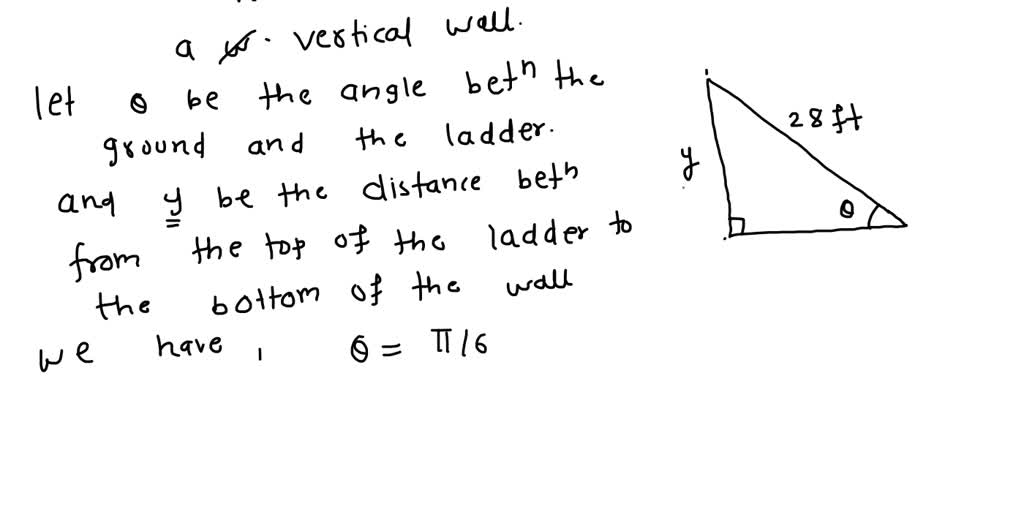 a vertical wall.
let θ be the angle betⁿ the
ground and the ladder.
and y be the distance betⁿ
from the top of the ladder to
the bottom of the wall
we have, θ = π/6
28 ft
y
θ